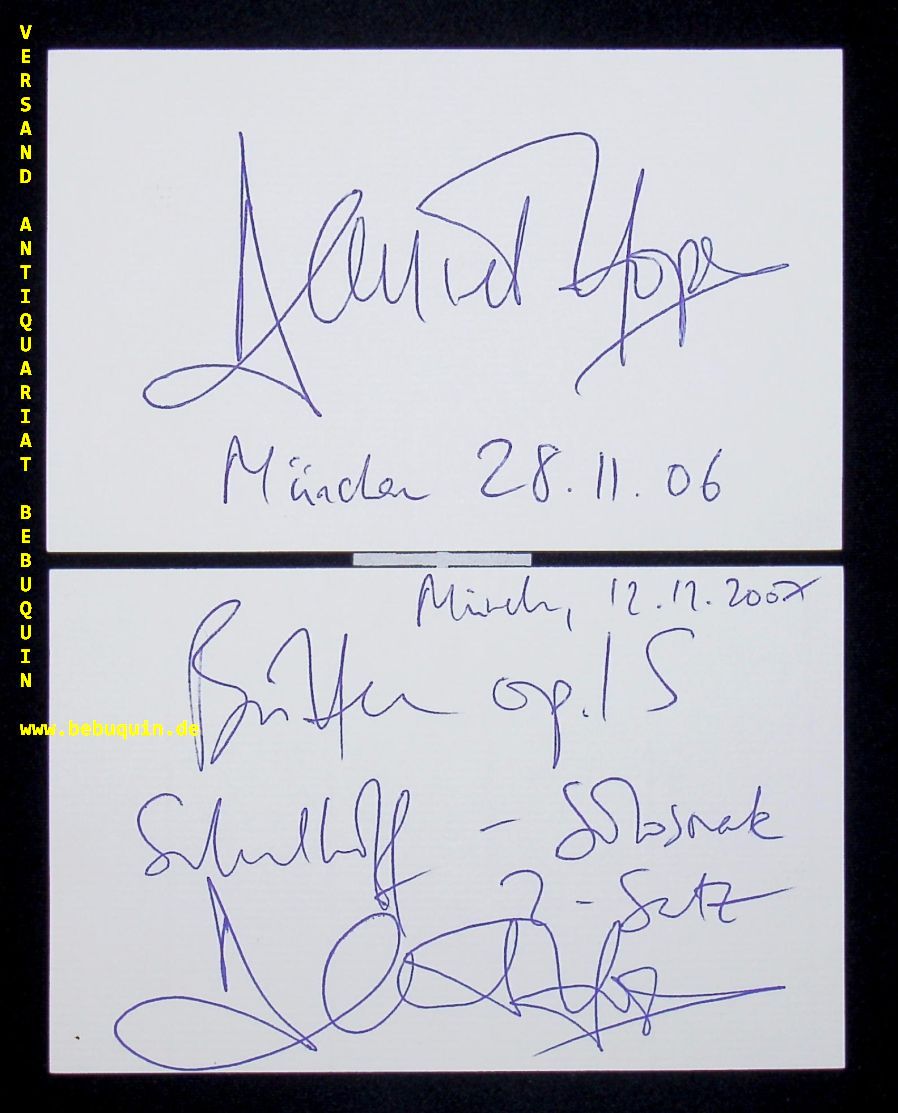 VERSAND ANTIQUARIAT BEBUQUIN
www.bebuquin.de
Daniel Hope
München 28.11.06
Münch, 12.12.2007
Britten op.15
Schulhoff - Solosonate
2 - Satz
Daniel Hope